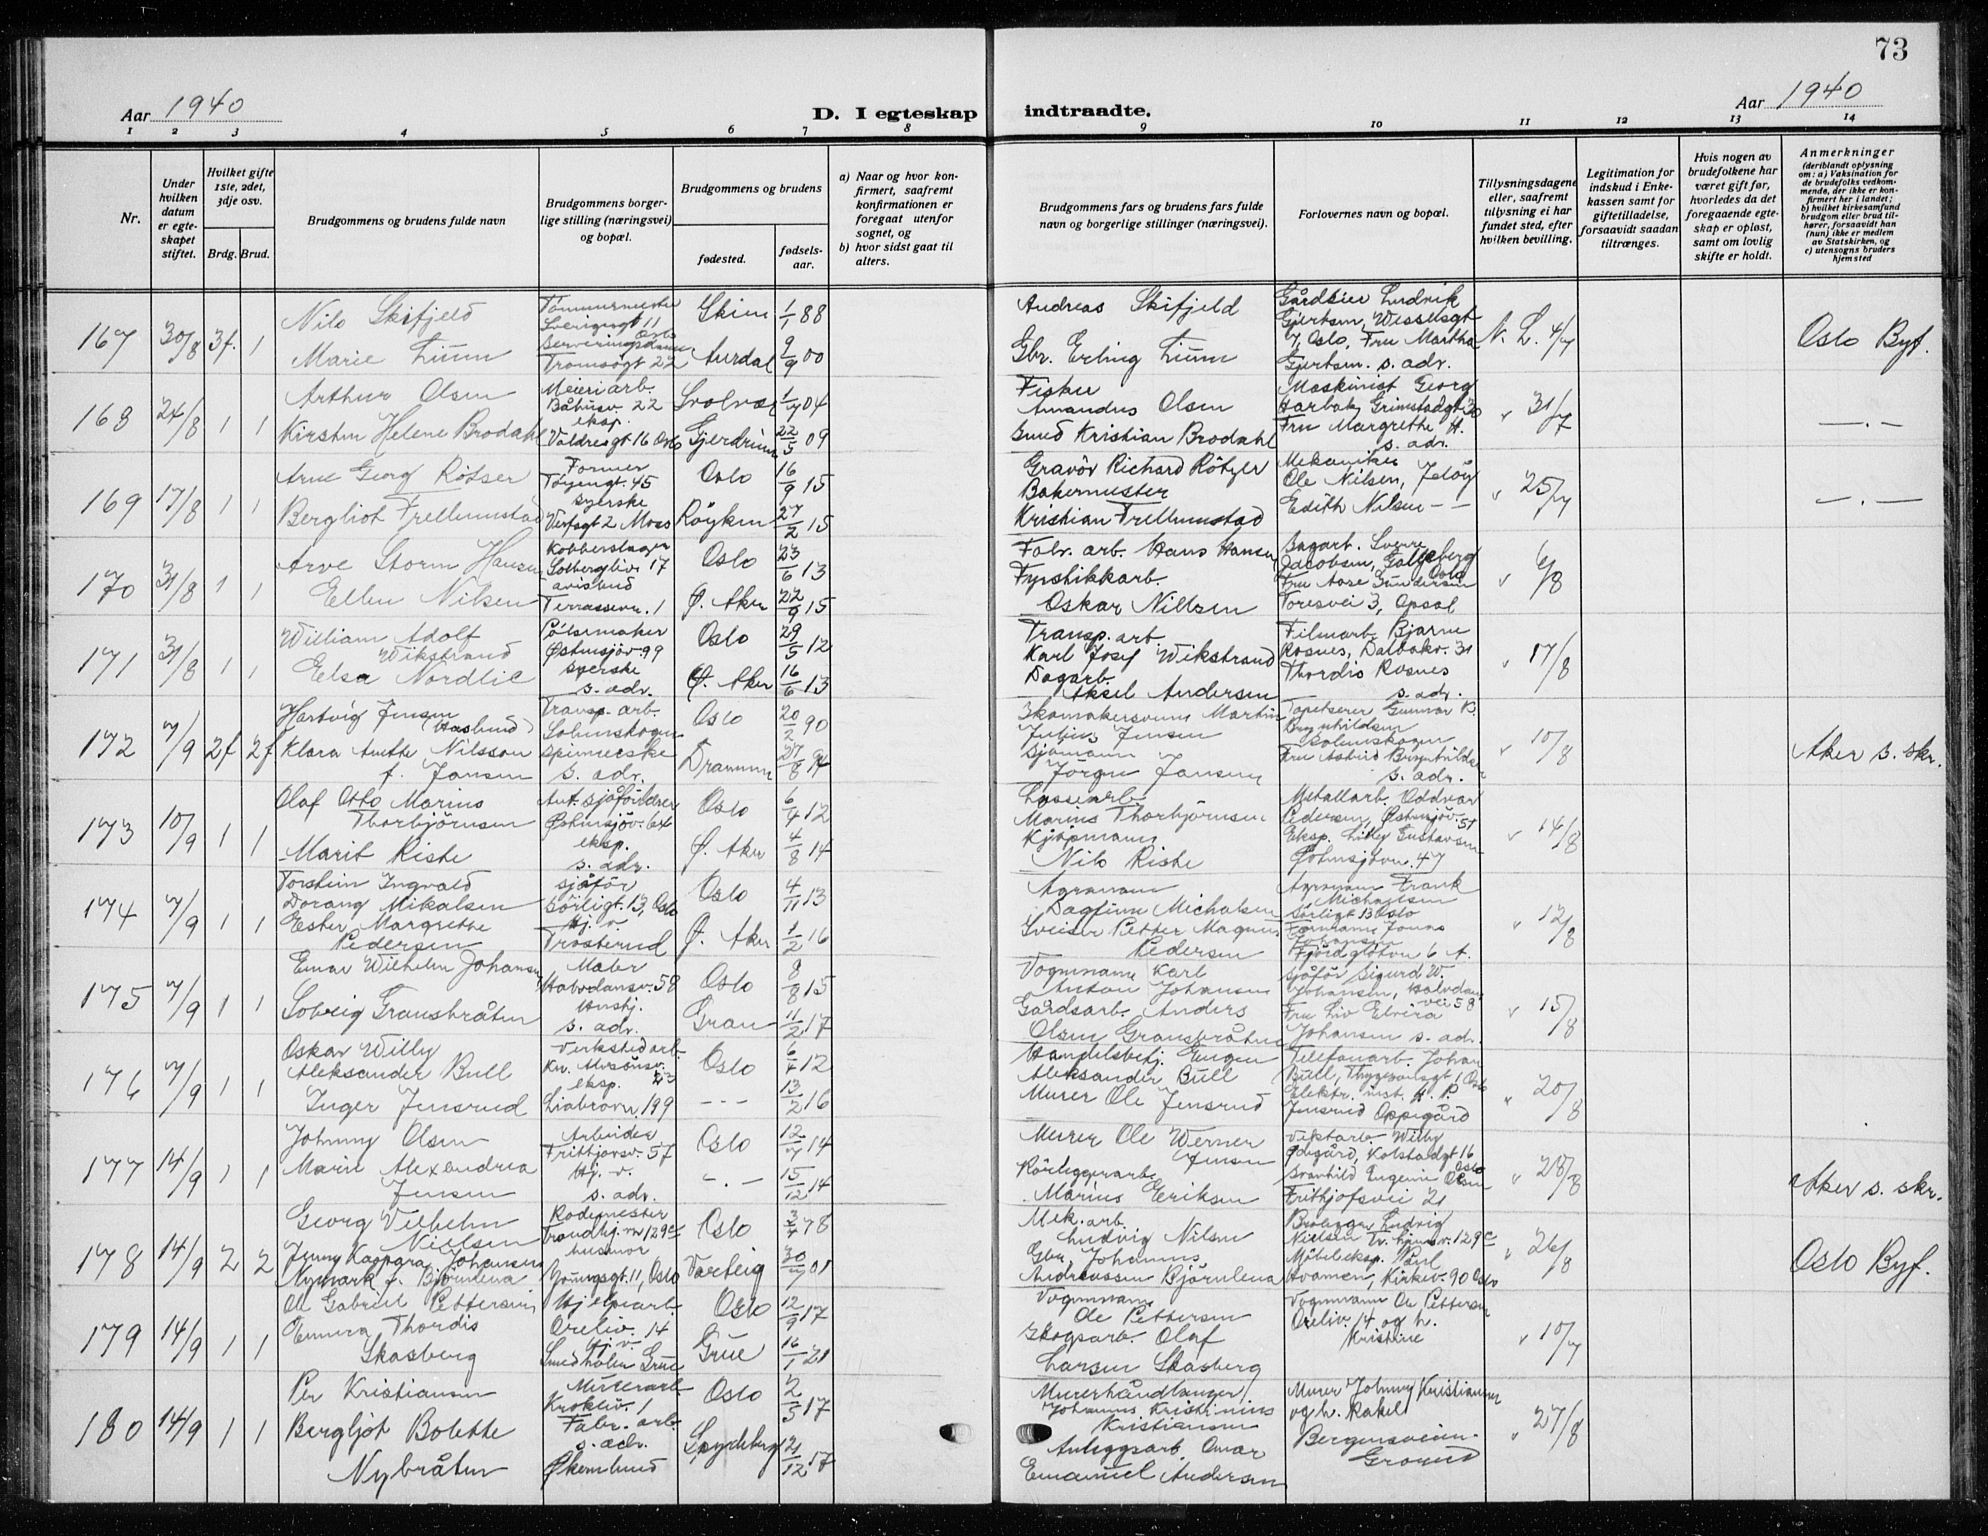 73
Aar 1940
D. I egteskap indtraadte.
Aar 1940
1 2 3 4 5 6 7 8 9 10 11 12 13 14
Nr.
Under hvilken datum er egteskapet stiftet.
Hvilket gifte 1ste, 2det, 3dje osv.
Brdg. Brud.
Brudgommens og brudens fulde navn
Brudgommens borgerlige stilling (næringsvei) og bopæl.
Brudgommens og brudens
fødested.
fødselsaar.
a) Naar og hvor konfirmert, saafremt konfirmationen er foregaat utenfor sognet, og
b) hvor sidst gaat til alters.
Brudgommens fars og brudens fars fulde navn og borgerlige stillinger (næringsvei).
Forlovernes navn og bopæl.
Tillysningsdagene eller, saafremt tillysning ei har fundet sted, efter hvilken bevilling.
Legitimation for indskud i Enkekassen samt for giftetilladelse, forsaavidt saadan tiltrænges.
Hvis nogen av brudefolkene har været gift før, hvorledes da det foregaaende egteskap er opløst, samt om lovlig skifte er holdt.
Anmerkninger
(deriblandt oplysning om: a) Vaksination for de brudefolks vedkommende, der ikke er konfirmert her i landet; b) hvilket kirkesamfund brudgom eller brud tilhører, forsaavidt han (hun) ikke er medlem av Statskirken, og c) utensogns bruders hjemsted
167 30/8 3f. 1
Nils Skifjeld
Tømmermester
Sverigesgt 11
Oslo
Skien 1/1 88
Andreas Skifjeld
Marie Lium
Serveringsdame
Tromsøgt 22
Aurdal 9/9 00
Gbr. Erling Lium
Gårdeier Ludvik
Gjertsen, Wesselsgt
7, Oslo, Fru Martha
Gjertsen s. adv.
N. L. 4/7
Oslo Byf.
168 24/8 1 1
Arthur Olsen
Meieriarb.
Båhusv. 22
Svolvær 1/7 04
Fisker
Amandus Olsen
Kirsten Helene Brodahl
eksp.
Valdresgt 16 Oslo
Gjerdrum 22/5 09
Smed Kristian Brodahl
Maskinist Georg
Harbak, Grimstadgt 30
Fru Margrethe H.
s. adr.
" 31/7
— . —
169 17/8 1 1
Arne Georg Rötser
Former
Tøyengt. 45
Oslo 16/9 15
Gravör Richard Rötzer
Bergliot Trellumstad
syerske
Verfsgt 2 Moss
Røyken 27/2 15
Bakermester
Kristian Trellumstad
Mekaniker
Ole Nilsen, Jeløy
Edith Nilsen — —
" 25/7
— . —
170 31/8 1 1
Arve Storm Hansen
Kobberslager
Solbergliv. 17
Oslo 23/6 13
Fabr. arb. Hans Hansen
Ellen Nilsen
avisbud
Terrassevn. 1
Ø. Aker 22/9 15
Fyrstikkarb.
Oskar Nilsen
Jacobsen, Galgeberg
Oslo
Fru Aase Gundersen
Toresvei 3, Opsal
" 6/8
171 31/8 1 1
William Adolf
Wikstrand
Pølsemaker
Østensjøv. 99
Oslo 29/5 12
Transp. arb.
Karl Josef Wikstrand
Elsa Nordlie
syerske
s. adr.
Ø. Aker 16/6 13
Dagarb.
Aksel Andersen
Filmarb. Bjarne
Rosnes, Dalbakv. 31
Thordis Rosnes
s. adr.
" 17/8
172 7/9 2f 2f
Hartvig Jensen
(Haslund)
Transp. arb.
Solemskogen
Oslo 20/2 90
Skomakersvenn Martin
Julius Jensen
Klara Anette Nilsson
f. Jansen
spinnerske
s. adr.
Drammen
Sjømann
Jörgen Jansen
Tapetserer Gunnar B.
Brynhildsen
Solemskogen
Fru Astrid Brynhildsen
s. adr.
" 10/8
Aker s. skr.
173 10/9 1 1
Olaf Otto Marius
Thorbjörnsen
Aut. sjåfør
Østensjøv. 64
Oslo 6/4 12
Lossearb.
Marius Thorbjörnsen
Marit Riste
eksp.
s. adr.
Ø. Aker 4/8 14
Kjøpmann
Nils Riste
Metallarb. Oddvar
Pedersen, Østensjöv. 51
Eksp. Lilly Gustavsen
Østensjövn. 47
" 14/8
174 7/9 1 1
Torstein Ingvald
Dorang Mikalsen
sjåför
Sörligt. 13, Oslo
Oslo 4/11 13
Agronom
Dagfinn Michalsen
Ester Margrethe
Pedersen
Hj. v.
Trosterud
Ø. Aker 1/2 16
Sveiser Petter Magnus
Pedersen
Agronom Frank
Michaelsen
Sörligt 13 Oslo
Formann Jonas
Johansen
Fjordgløtvn 6 A.
" 12/8
175 7/9 1 1
Einar Wilhelm Johansen
Maler
Halvdansv. 58
Oslo 8/8 15
Vognmann Karl
Anton Johansen
Solveig Gransbråten
Hushj.
s. adr.
Gran 11/2 17
Gårdsarb. Anders
Olsen Gransbråten
sjåför Sigurd W.
Johansen, Halvdans
vei 58
Fru Liv Elvira
Johansen s. adr.
" 15/8
176 7/9 1 1
Oskar Willy
Aleksander Bull
Verkstedarb.
Oslo 6/4 12
Handelsbetj. Eugen
Aleksander Bull
Inger Jensrud
eksp.
Ljabrovn. 199
— — — 13/2 16
Murer Ole Jensrud
Telefonarb. Johan
Bull, Thygesonsgt 1 Oslo
Elektr. inst. H. P.
Jensrud Oppegård
" 20/8
177 14/9 1 1
Johnny Olsen
Arbeider
Fritjofsv. 57
Oslo 12/7 14
Murer Ole Werner
Jensen
Marie Alexandra
Jensen
Hj. v.
s. adr.
— . — 15/12 14
Rörleggerarb.
Marius Eriksen
Verkstarb. Willy
Ødegård, Kolstadgt 16
Oslo
Svanhild Ingeniv Olsen
Frithjofsvei 21
" 28/8
Aker s. skr.
178 14/9 2 2
Georg Vilhelm
Nielsen
Rodemester
Trondhj. vn 129c
Oslo 3/4 78
Mek. arb.
Ludvig Nilsen
Jenny Kaspara Johansen
Nymark f. Björnlena
husmor
Youngsgt. 11, Oslo
Varteig 30/7 01
Gbr. Johannes
Andreassen Björnlena
Ludvig
Nielsen Tr. hjemsv. 129c
Möbeleksp. Paul
Hvamen, Kirkev. 90 Oslo
" 26/8
Oslo Byf.
179 14/9 1 1
Ole Gabriel Pettersen
Hjelpearb.
Oreliv. 14
Oslo 12/9 17
Vognmann
Ole Pettersen
Emma Thordis
Skasberg
Hj. v.
Smedholen Grue
Grue 16/1 21
Skogsarb. Olaf
Larsen Skasberg
Vognmann Ole Pettersen
Oreliv. 14 og h.
Kristine
" 10/7
180 14/9 1 1
Per Kristiansen
Murerarb.
Krokliv. 1
Oslo 2/5 17
Murerhåndlanger
Johannes Kristinius
Kristiansen
Bergljot Bolette
Nybråten
Fabr. arb.
s. adr.
Økernlund
Spydeberg 21/12 17
Anleggsarb. Omar
Emanuel Andersen
Murer Johnny Kristiansen
og h. Rakel
Bergensveien
Grorud
" 27/8